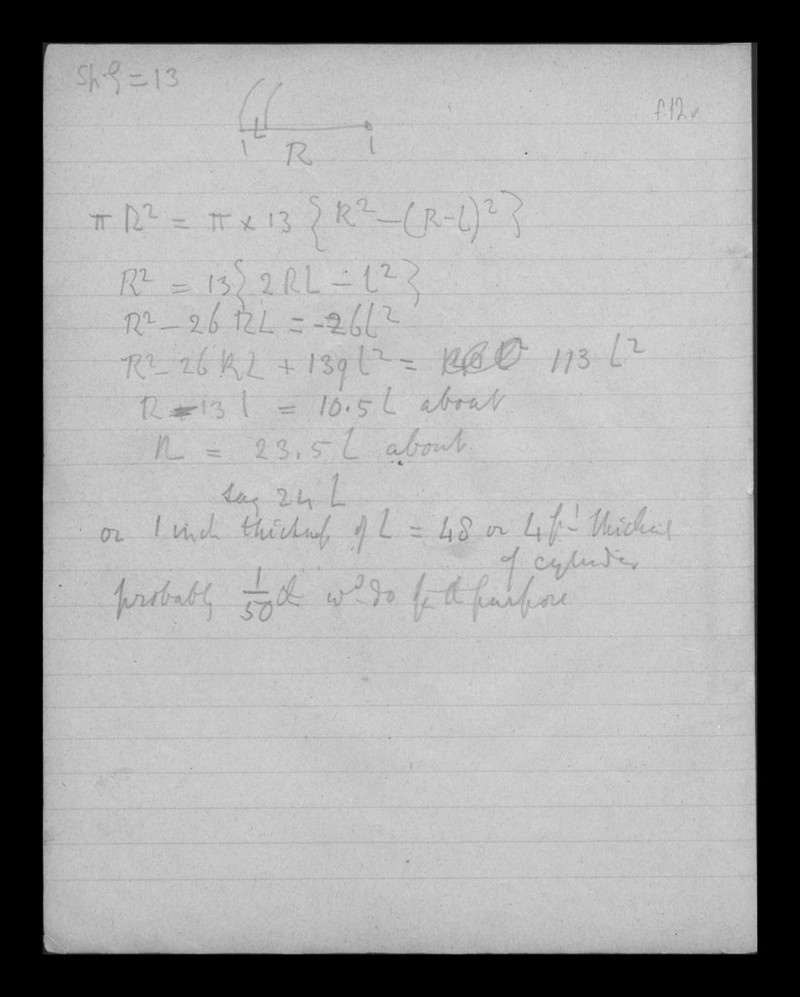 Sp G = 13
f.12v
L
R
π R² = π × 13 { R² - (R-L)² }
R² = 13 { 2RL - L² }
R² - 26 RL = -26L²
R² - 26 RL + 139 L² = 113 L²
R - 13 L = 10.5 L about
R = 23.5 L about
say 24 L
or 1 inch thickness of L = 48 or 4 ft
of cylinder
probably 1/50 th wd do for the purpose